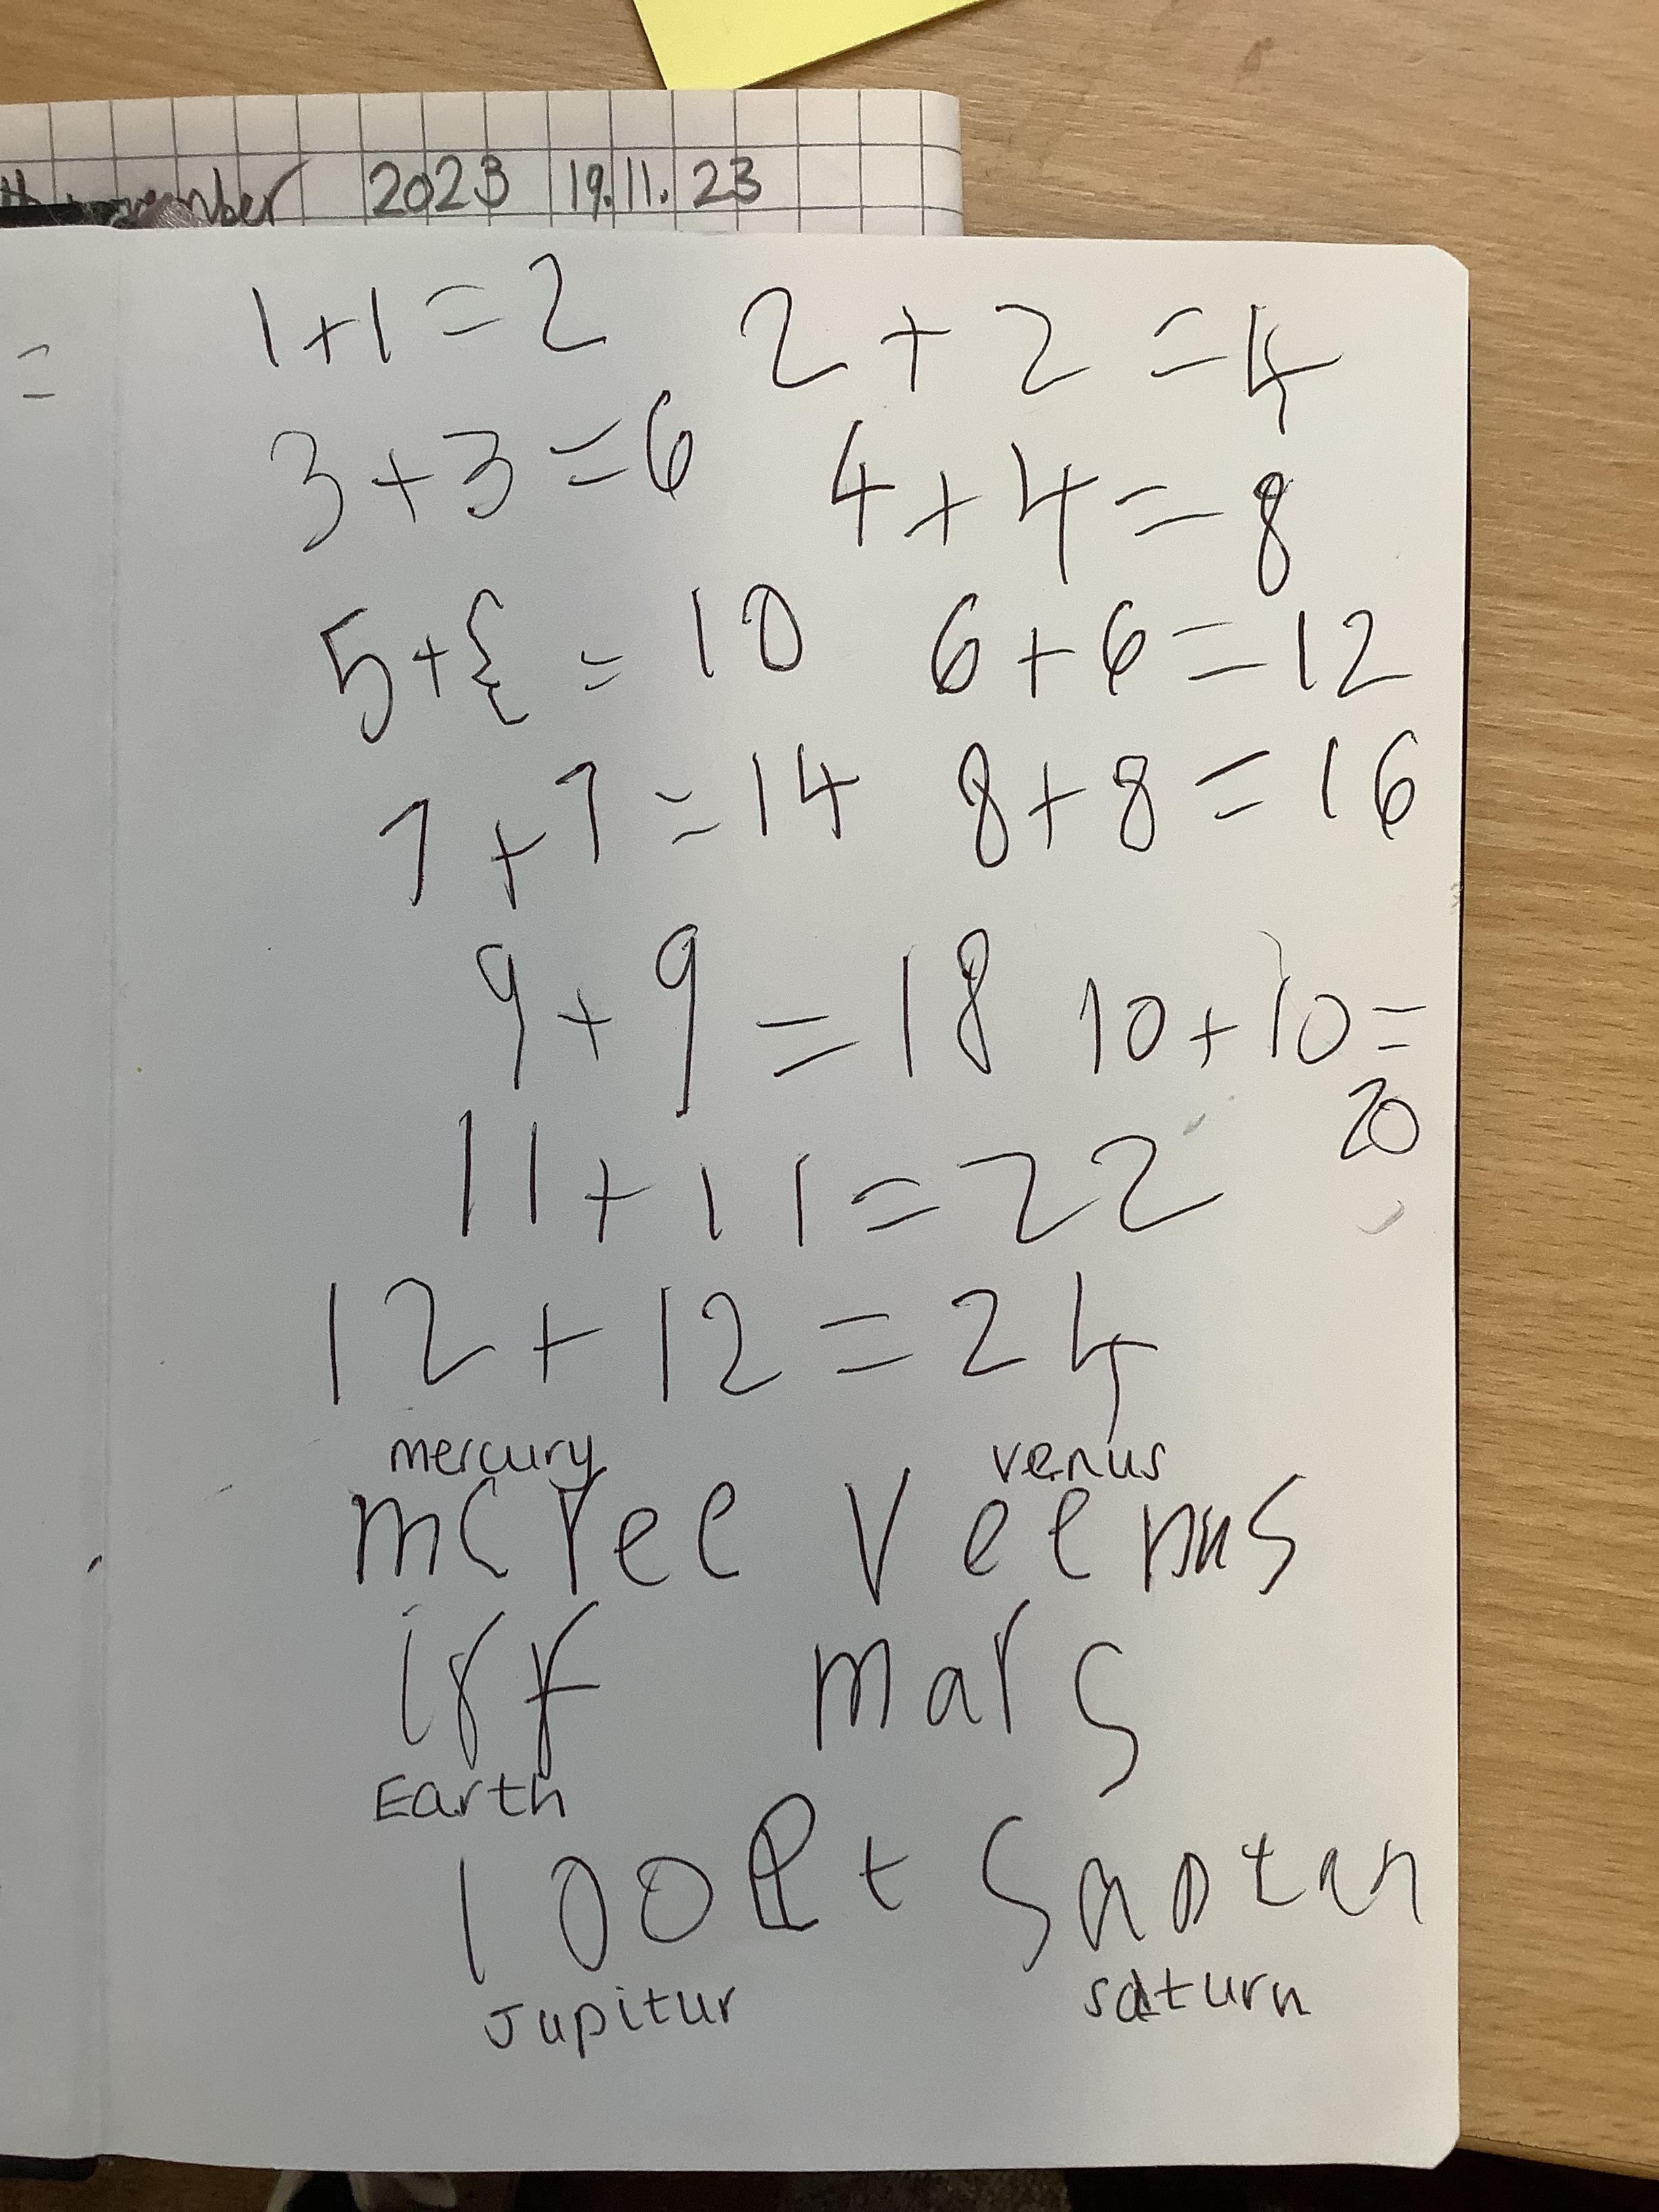 2023 19.11.23
=
1+1=2 2+2=4
3+3=6 4+4=8
5+5=10 6+6=12
7+7=14 8+8=16
9+9=18 10+10=
20
11+11=22
12+12=24
mercury venus
mcree Veenus
iff mars
Earth
Jupitur saturn